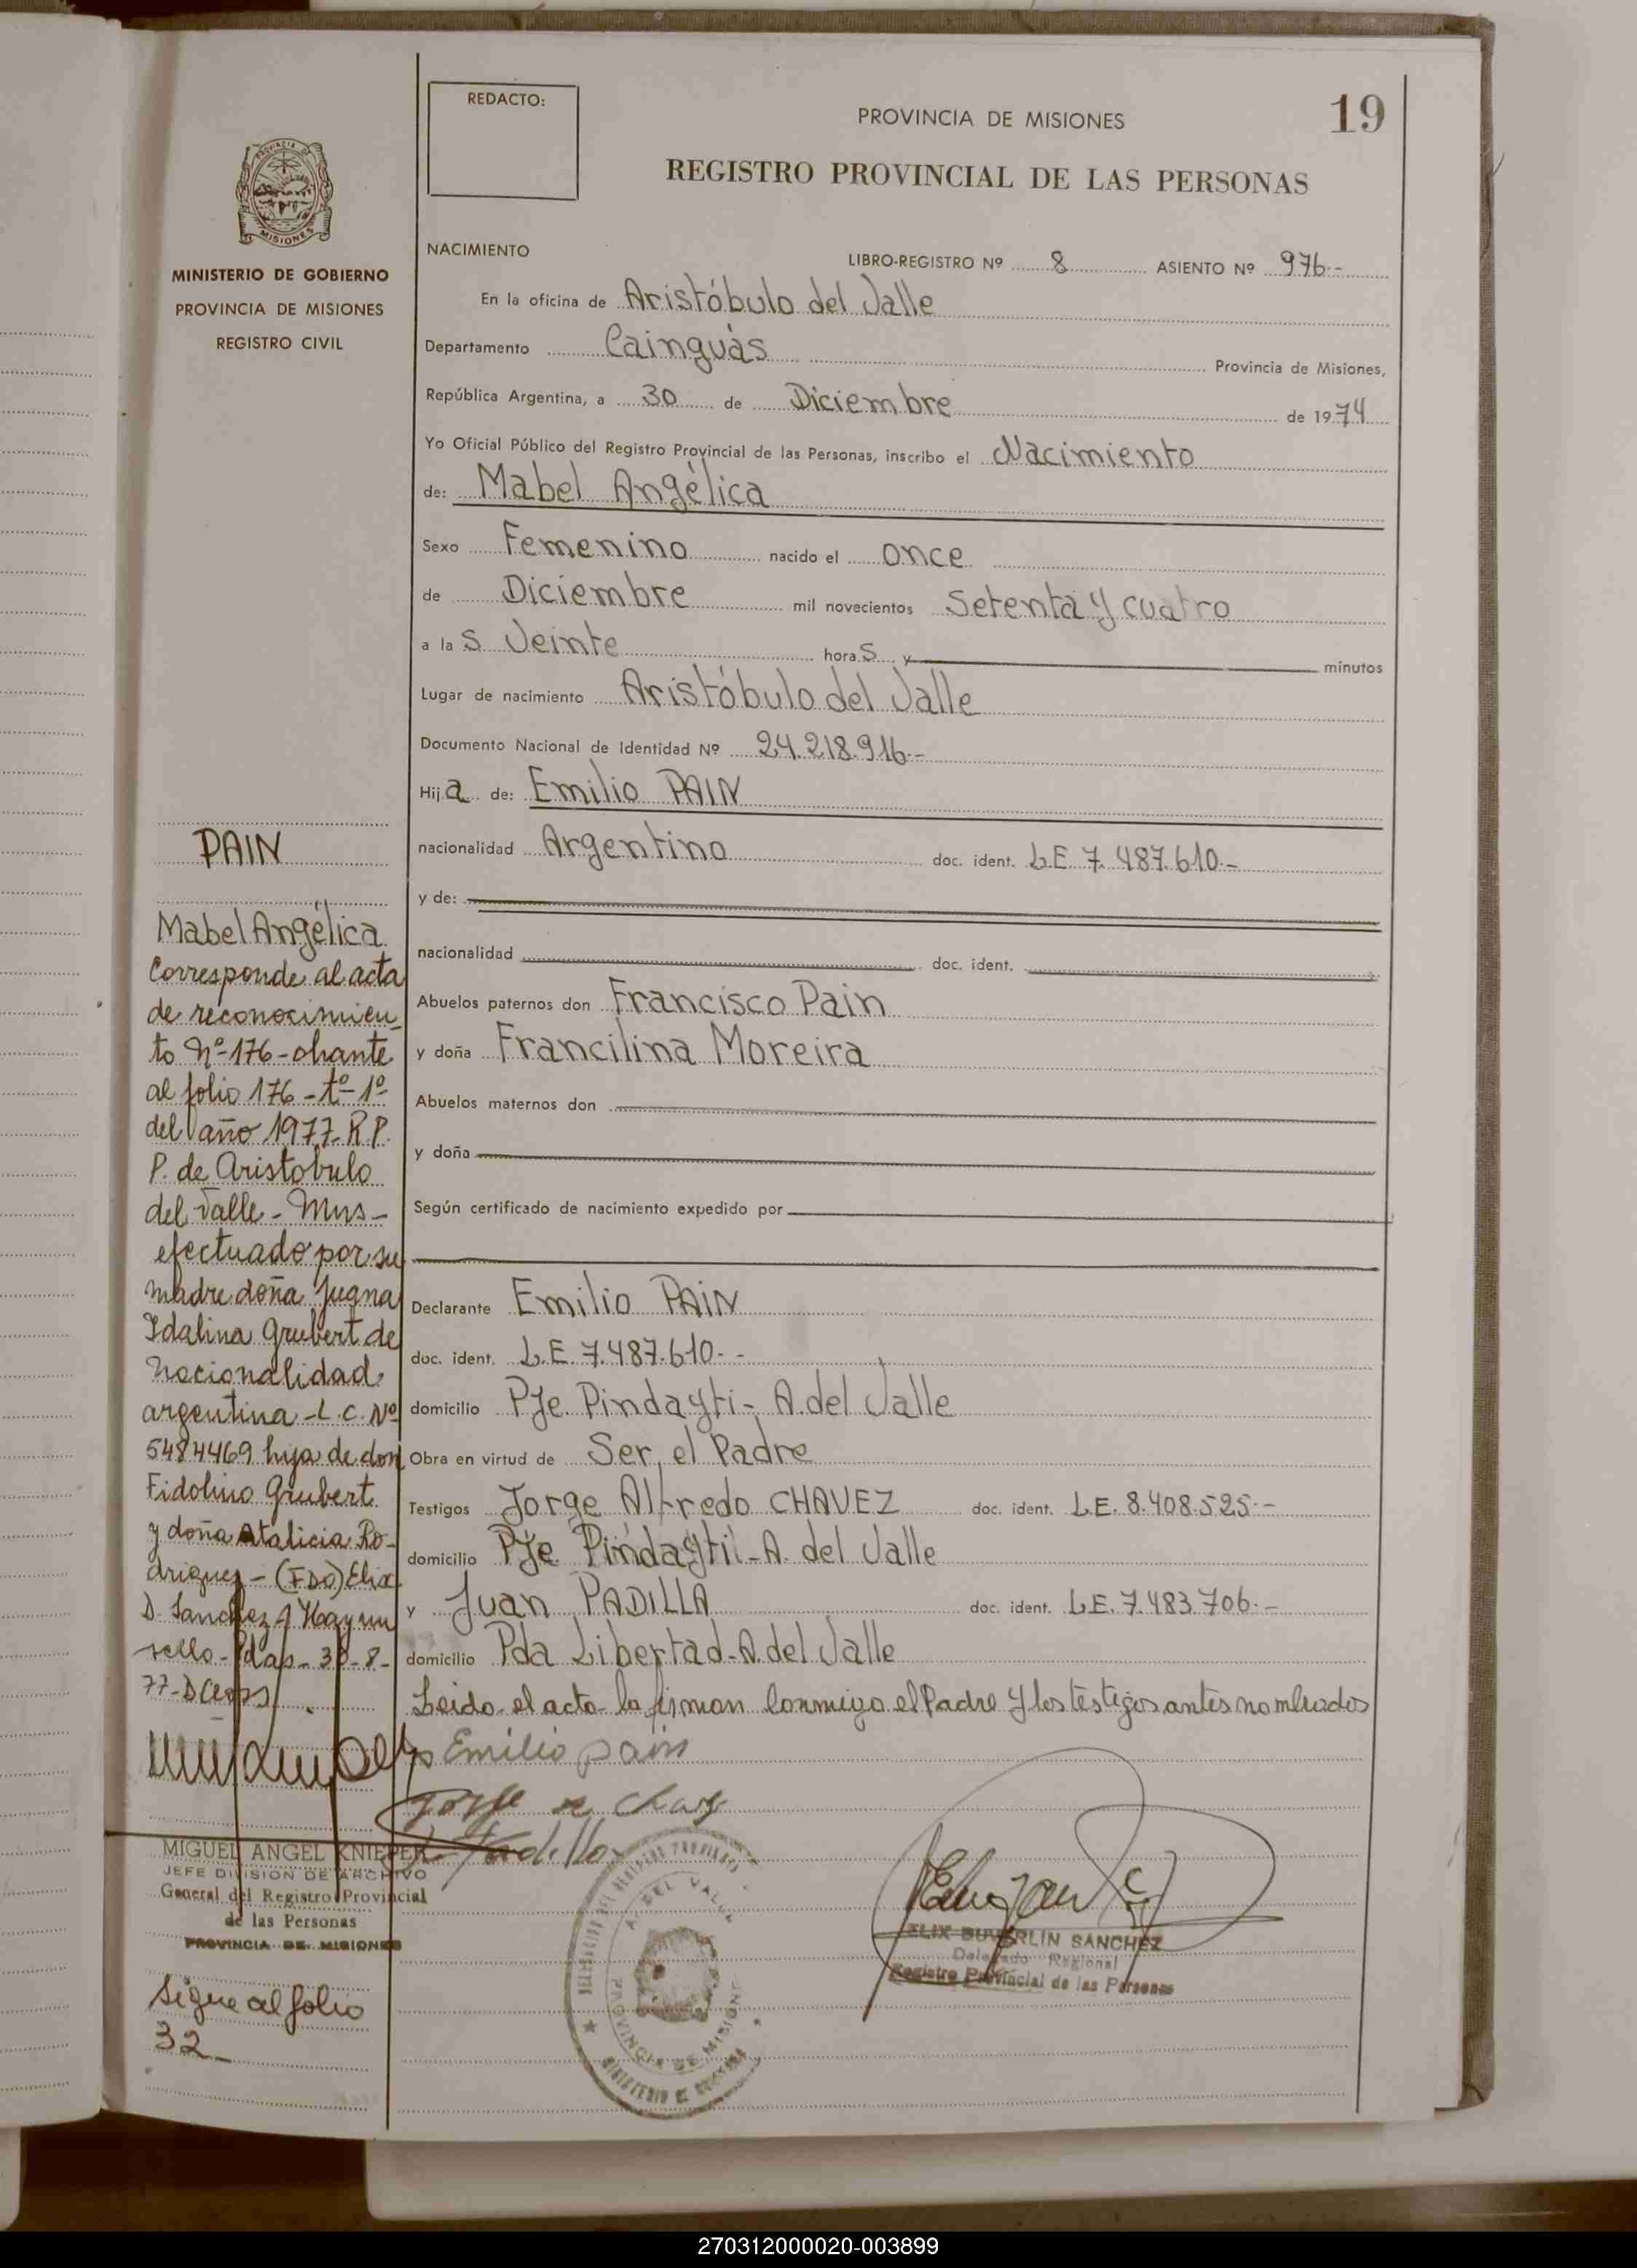 REDACTO:
PROVINCIA DE MISIONES
19
REGISTRO PROVINCIAL DE LAS PERSONAS
PROVINCIA DE
MISIONES
MINISTERIO DE GOBIERNO
PROVINCIA DE MISIONES
REGISTRO CIVIL
NACIMIENTO
LIBRO-REGISTRO Nº 8 ASIENTO Nº 976.-
En la oficina de Aristóbulo del Valle
Departamento Cainguás Provincia de Misiones,
República Argentina, a 30 de Diciembre de 1974
Yo Oficial Público del Registro Provincial de las Personas, inscribo el Nacimiento
de: Mabel Angélica
Sexo Femenino nacido el once
de Diciembre mil novecientos Setenta y cuatro
a las Veinte horas y minutos
Lugar de nacimiento Aristóbulo del Valle
Documento Nacional de Identidad Nº 24.218.916.-
Hija de: Emilio PAIN
nacionalidad Argentino doc. ident. L.E. 7.487.610.-
y de:
nacionalidad doc. ident.
Abuelos paternos don Francisco Pain
y doña Francilina Moreira
Abuelos maternos don
y doña
Según certificado de nacimiento expedido por
Declarante Emilio PAIN
doc. ident. L.E. 7.487.610.-
domicilio Pje. Pindayti- A. del Valle
Obra en virtud de Ser el Padre
Testigos Jorge Alfredo CHAVEZ doc. ident. L.E. 8.408.525.-
domicilio Pje Pindaytil-A. del Valle
y Juan PADILLA doc. ident. L.E. 7.483.706.-
domicilio Pda Libertad-A. del Valle
Leido el acta la firman Conmigo el Padre y los testigos antes nombrados
Emilio pain
Jorge a Chav
Padilla
PAIN
Mabel Angélica
Corresponde al acta
de reconocimien_
to Nº 176-obrante
al folio 176-tº-1º
del año 1977-R.P.
P. de Aristobulo
del Valle-Mns-
efectuado por su
madre doña Juana
Idalina Grubert de
nacionalidad
argentina-L.C. Nº
5484469 hija de don
Fidolino Grubert
y doña Atalicia Ro-
driguez-(FDO) Elix
D. Sanchez y Hay un
sello-Pdas-30-8-
77-
MIGUEL ANGEL KNIEPER
JEFE DIVISION DE ARCHIVO
General del Registro Provincial
de las Personas
PROVINCIA DE MISIONES
Sigue al folio
32-
A. DEL VALLE
PROVINCIA DE MISIONES
ELIX DUVERLIN SANCHEZ
Delegado Regional
Registro Provincial de las Personas
270312000020-003899